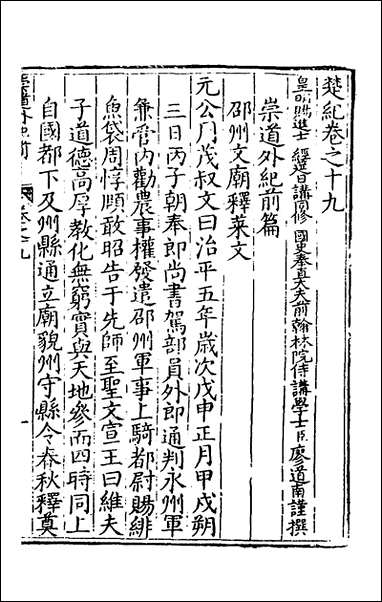 楚紀卷之十九
皇明賜進士 經筵日講同修 國史奉直大夫前翰林院侍講學士臣廖道南謹撰
崇道外紀前篇
邵州文廟釋菜文
元公門茂叔文曰治平五年歲次戊申正月甲戌朔
三日丙子朝奉郎尚書駕部員外郎通判永州軍
兼管內勸農事權發遣邵州軍事上騎都尉賜緋
魚袋周惇頤敢昭告于先師至聖文宣王曰維夫
子道德高厚教化無窮實與天地參而四時同上
自國都下及州縣通立廟貌州守縣令春秋釋奠